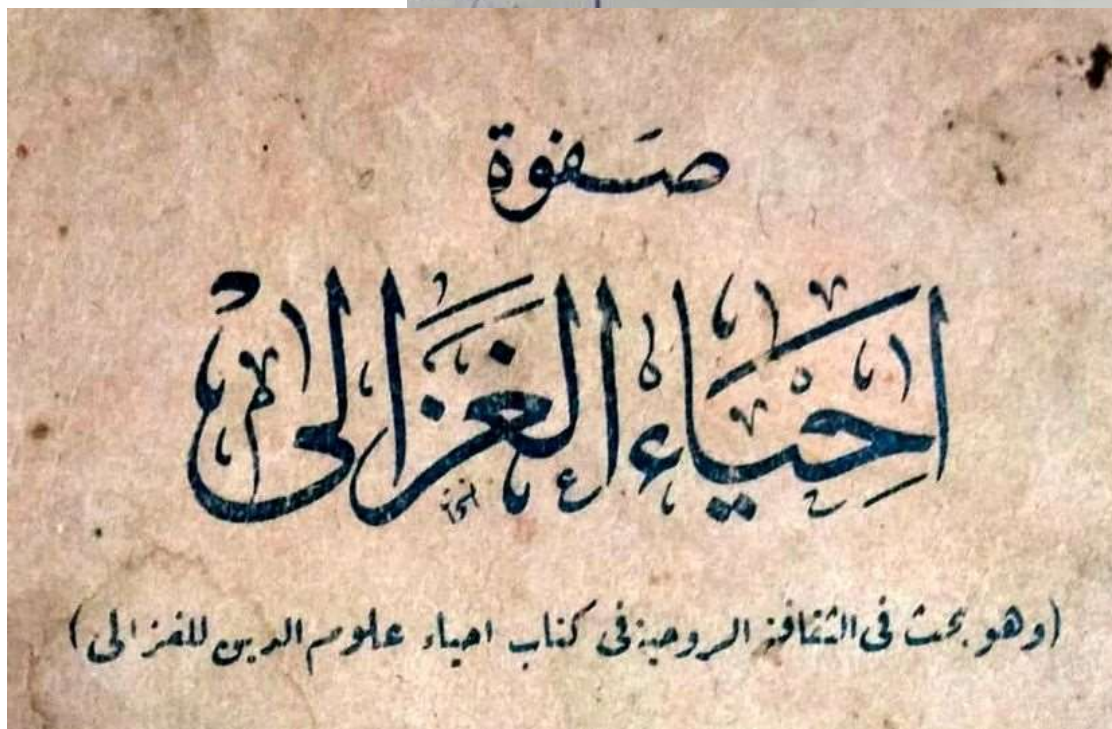 صفوة
احياء الغزالى
(وهو بحث فى الثقافة الروحية فى كتاب احياء علوم الدين للغزالى)